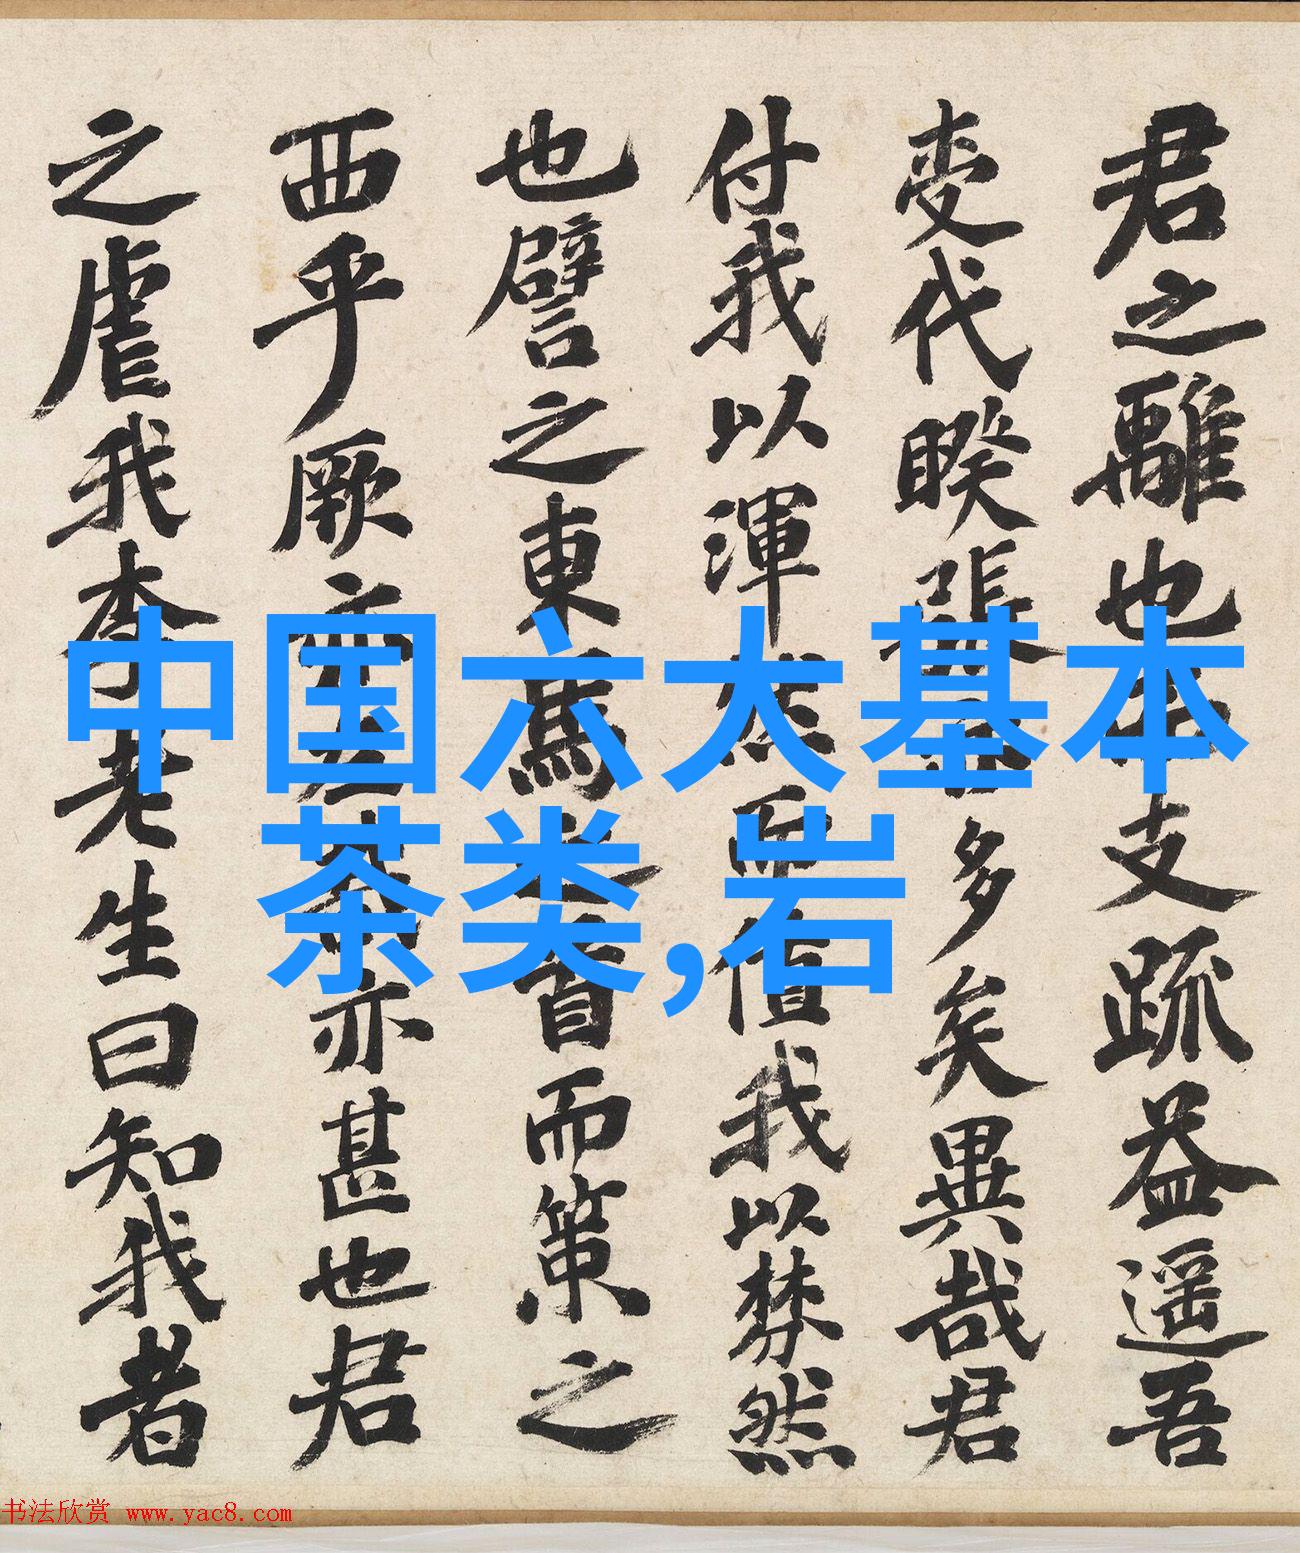 中国六大基本
茶类,岩
君之離也支疏益遥吾
代暌張多矣異哉君
付我以渾然而值我以棼然
也譬之東馬之首而策之
西乎厥亦亦甚也君
之虐我李老生曰知我者
书法欣赏 www.yac8.com